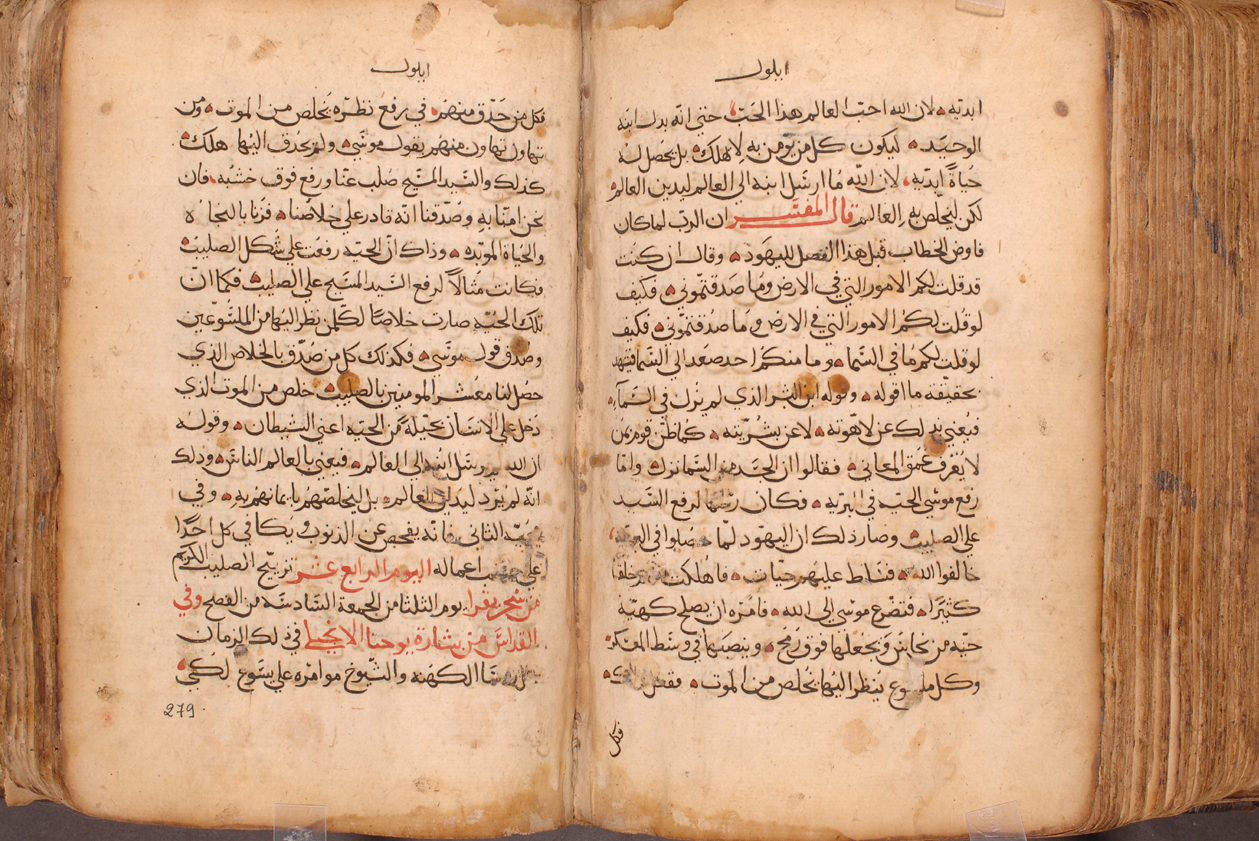 ايلول
ابديه لان الله احب العالم هذا الحب حتي انه بدل ابنه
الوحيد ليكون كل من يومن به لا يهلك بل يحصل له
حياة ابديه لان الله ما ارسل ابنه الي العالم ليدين العالم
لكن ليخلص به العالم قال المفسر ان الرب لما كان
فاوض الخطاب قبل هذا الفصل لليهود وقال ان كنت
قد قلت لكم الامور التي في الارض وما صدقتموني فكيف
لو قلت لكم الامور التي في الارض وما صدقتموني فكيف
لو قلت لكم ما في السما وما منكم احد صعد الي السما فشهد
بحقيقة ما اقوله وقوله ابن البشر الذي لم يزل في السمآء
فيعني بذلك عن لاهوته لا عن بشريته كما ظن قوم ممن
لا يعرف عمق المعاني فقالوا ان الجسد من السما نزل واما
رفع موسي الحيه في البريه فكان رسما لرفع السيد
علي الصليب وصار ذلك ان اليهود لما حصلوا في
خالفوا الله فسلط عليهم حيات فاهلكت منهم خلقا
كثيرا فتضرع موسي الي الله فامره ان يصلح كهية
حيه من نحاس ويجعلها فوق رمح وينصبها في وسط العسكر
وكل ملسوع ينظر اليها يخلص من الموت ففعل ذلك
فكل
ايلول
فكل من حدق منهم في رفع نظره يخلص من الموت ومن
تهاون تهاون منهم بقول موسي ولم يحدق اليها هلك
كذلك والسيد المسيح صلب عنا ورفع فوق خشبه فان
نحن امنا به وصدقنا انه قادر علي خلاصنا فزنا بالنجاه
والحياة الموبده وذاك ان الحيه رفعت علي شكل الصليب
فكانت مثالا لرفع السيد المسيح علي الصليب فكما ان
تلك الحيه صارت خلاصا لكل من نظر اليها من الملسوعين
وصدق قول موسي فكذلك كل من صدق بالخلاص الذي
حصل لنا معشر المومنين بالصليب خلص من الموت الذي
دخل علي الانسان بحيلة من الحيه اعني الشيطان وقوله
ان الله لم يرسل ابنه الي العالم فيعني بالعالم الناس وذلك
انه لم يرد ليدين العالم بل ليخلصهم بايمانهم به وفي
مجيه الثاني فانه يفحص عن الذنوب ويكافي كل احدا
علي حسب اعماله اليوم الرابع عشر تزييح الصليب الكريم
من سحر يقرا يوم الثلثا من الجمعة السادسة من الفصح وفي
القداس من بشارة يوحنا الانجيلي في ذلك الزمان
روسا الكهنه والشيوخ موامره علي يسوع لكي
279